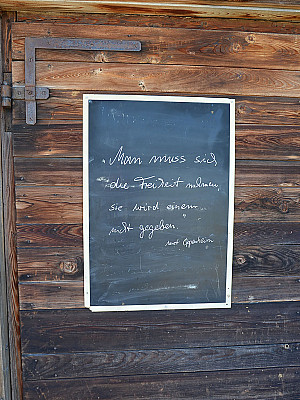 „Man muss sich
die Freiheit nehmen,
sie wird einem
nicht gegeben.“
Meret Oppenheim